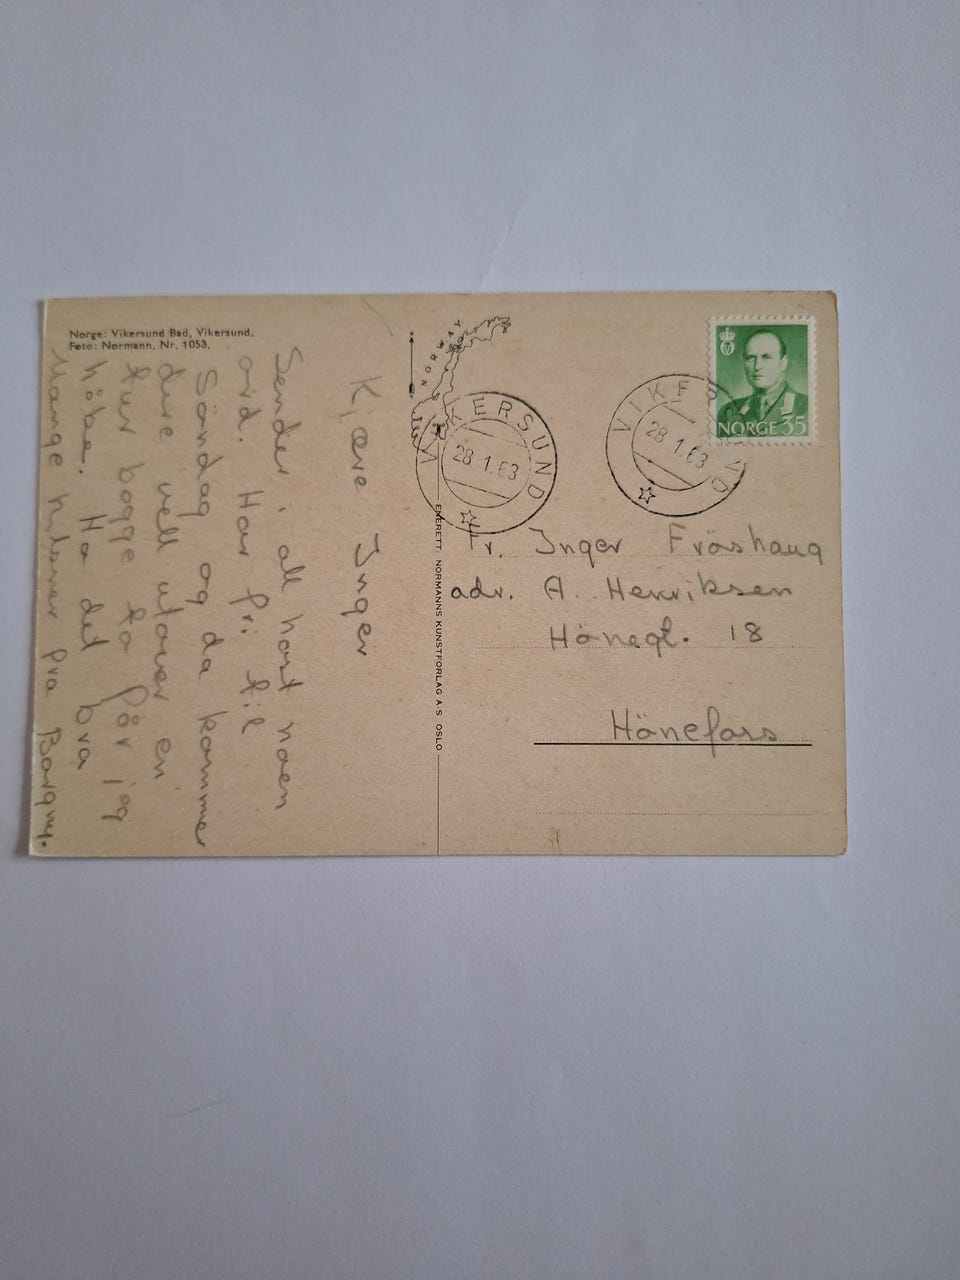 Norge: Vikersund Bad, Vikersund.
Foto: Normann, Nr. 1053.
NORWAY
VIKERSUND
28 1.63
VIKERSUND
28 1.63
NORGE 35
Kjære Inger
Sender i all hast noen
ord. Har fri til
Søndag og da kommer
dere vell utover en
tur begge to før jeg
Ha det bra
Mange hilsner fra
ENERETT: NORMANNS KUNSTFORLAG A·S OSLO
Fr. Inger Fröshaug
adr. A. Henriksen
Hönegt. 18
Hönefoss